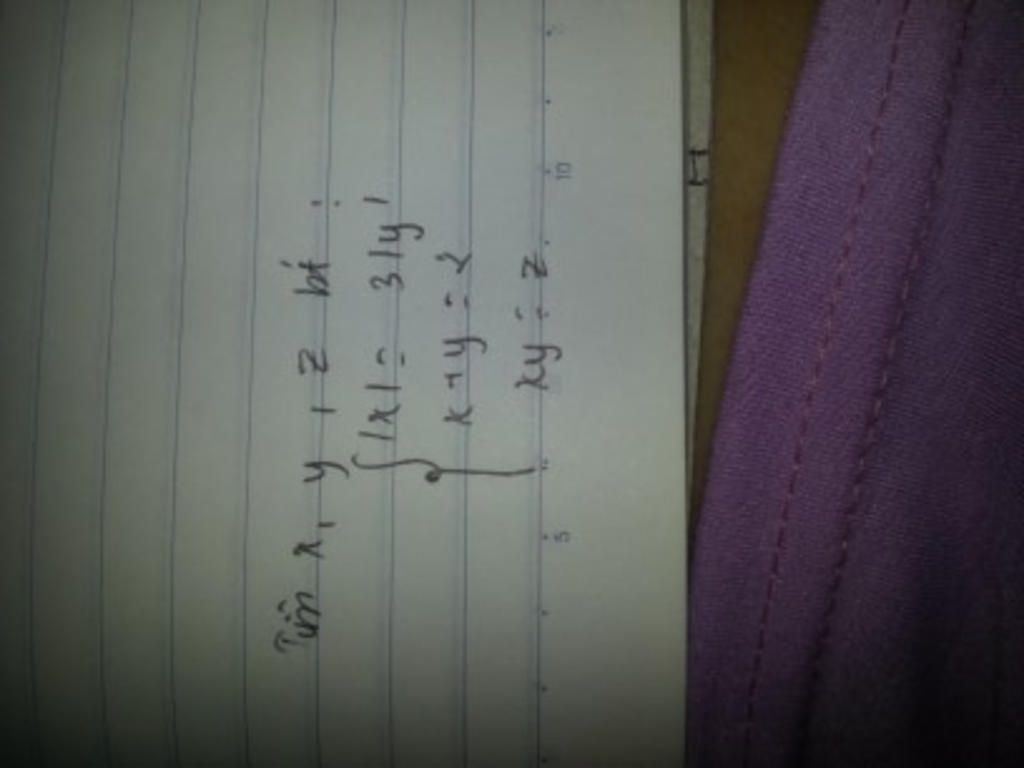 Tìm x, y, z bt :
|x| = 3|y|
x + y = 2
xy = z
5
10